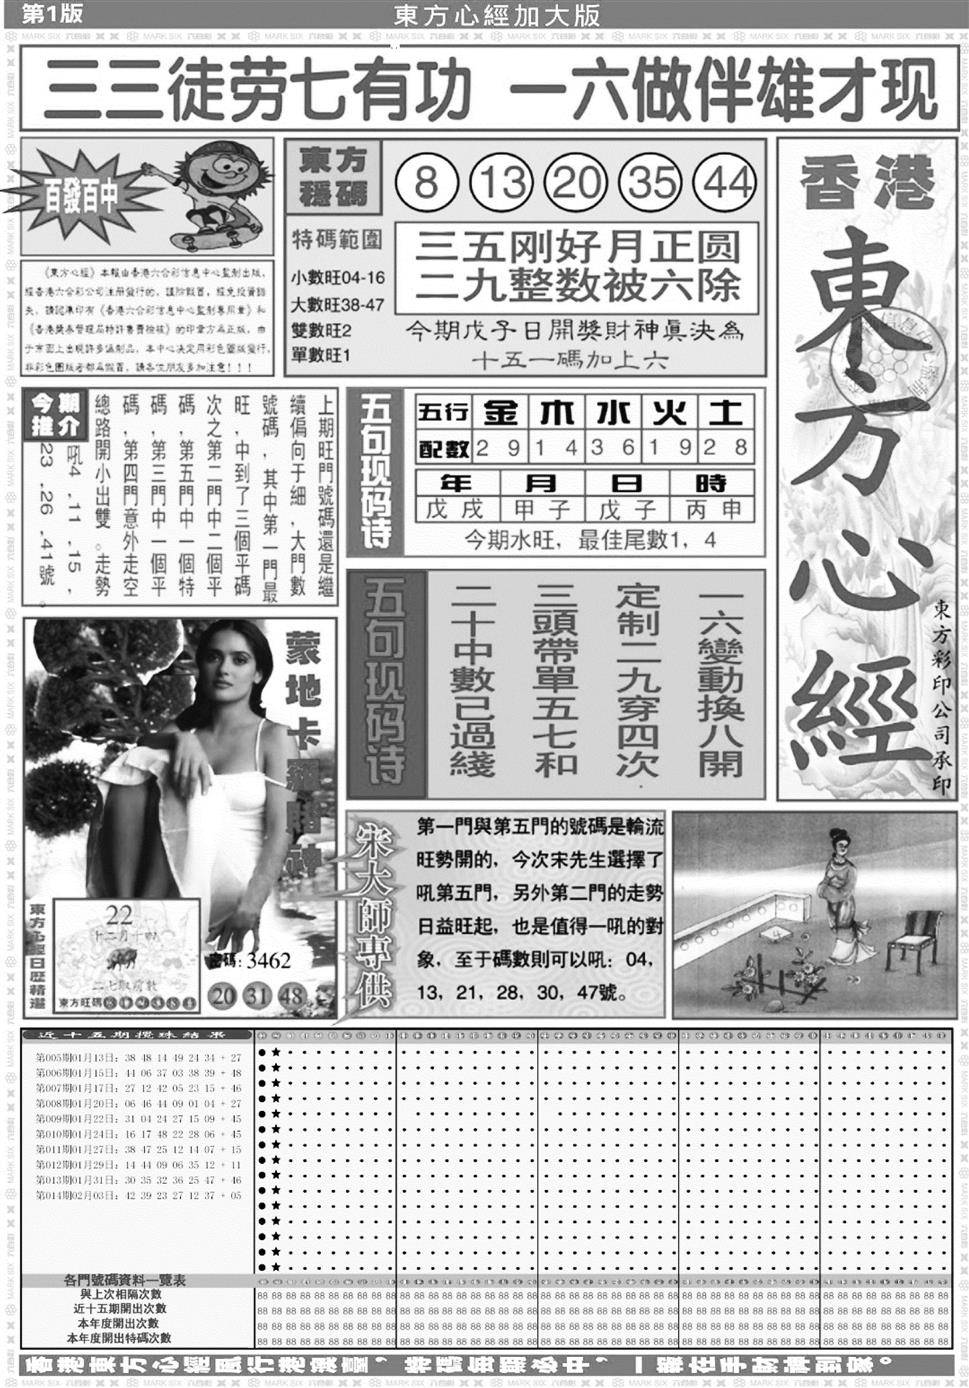 第1版
東方心經加大版
三三徒劳七有功 一六做伴雄才现
百發百中
東方
穩碼
8 13 20 35 44
特碼範圍
小數旺04-16
大數旺38-47
雙數旺2
單數旺1
三五刚好月正圆
二九整数被六除
今期戊子日開獎財神眞決為
十五一碼加上六
香港
東方心經
東方彩印公司承印
《東方心經》本報由香港六合彩信息中心監制出版，
經香港六合彩公司注册發行的，謹防假冒，經免投資錯
失，請認準印有《香港六合彩信息中心監制專用章》和
《香港獎券管理局特許書費檢核》的印章方為正版，由
于市面上出現許多偽制品，本中心决定用彩色圖版發行，
非彩色圖版者都為假冒，請各位朋友多加注意！！！
今期
推介
上期旺門號碼還是繼
續偏向于細，大門數
號碼，其中第一門最
旺，中到了三個平碼
次之第二門中二個平
碼，第五門中一個特
碼，第三門中一個平
碼，第四門意外走空
總路開小出雙。走勢
吼4，11，15，
23，26，41號。
五句现码诗
五行 金 木 水 火 土
配數 2 9 1 4 3 6 1 9 2 8
年 月 日 時
戊戌 甲子 戊子 丙申
今期水旺，最佳尾數1，4
五句现码诗
一六變動換八開
定制二九穿四次
三頭帶單五七和
二十中數已過綫
蒙地卡羅賭神
東方心經日歷精選
22
十二月十四
東方旺碼
密碼：3462
20 31 48
宋大師專供
第一門與第五門的號碼是輪流
旺勢開的，今次宋先生選擇了
吼第五門，另外第二門的走勢
日益旺起，也是值得一吼的對
象，至于碼數則可以吼：04，
13，21，28，30，47號。
近十五期攪珠結果
第005期01月13日：38 48 14 49 24 34 + 27
第006期01月15日：44 06 37 03 38 39 + 48
第007期01月17日：27 12 42 05 23 15 + 46
第008期01月20日：06 46 44 09 01 04 + 27
第009期01月22日：31 04 24 27 15 09 + 45
第010期01月24日：16 17 48 22 28 06 + 45
第011期01月27日：38 47 25 12 14 07 + 15
第012期01月29日：14 44 09 06 35 12 + 11
第013期01月31日：30 35 32 36 25 47 + 46
第014期02月03日：42 39 23 27 12 37 + 05
各門號碼資料一覽表
與上次相隔次數
近十五期開出次數
本年度開出次數
本年度開出特碼次數
香港東方心經風行港澳臺，特碼每期必中，一版在手財神到家。